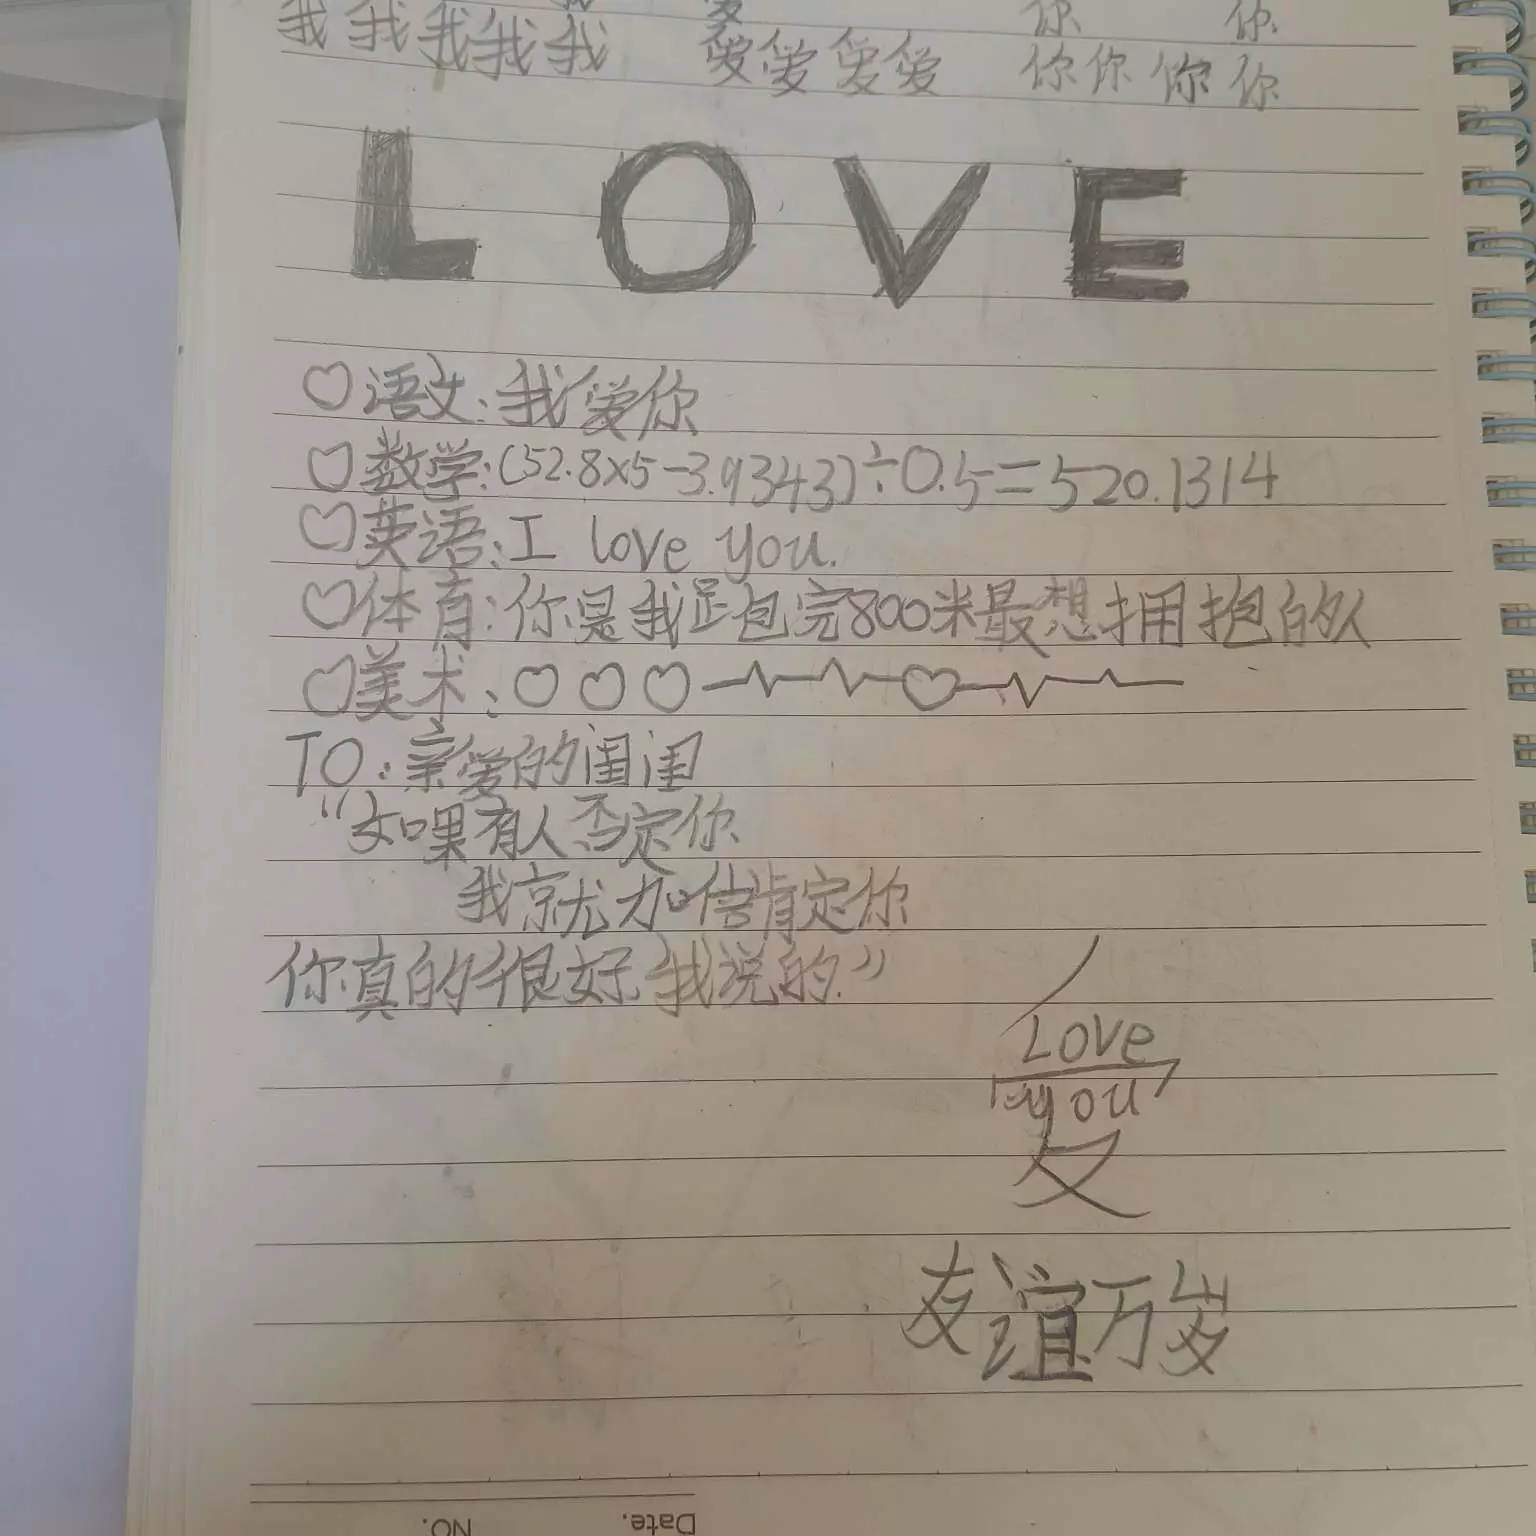 我我我我我 爱爱爱爱 你你你你
LOVE
语文:我爱你
数学:(52.8×5-3.9343)÷0.5=520.1314
英语:I love you.
体育:你是我跑完800米最想拥抱的人
美术:
TO:亲爱的闺闺
“如果有人否定你
我就加倍肯定你
你真的很好,我说的.”
Love
you
友谊万岁
Date.
NO.